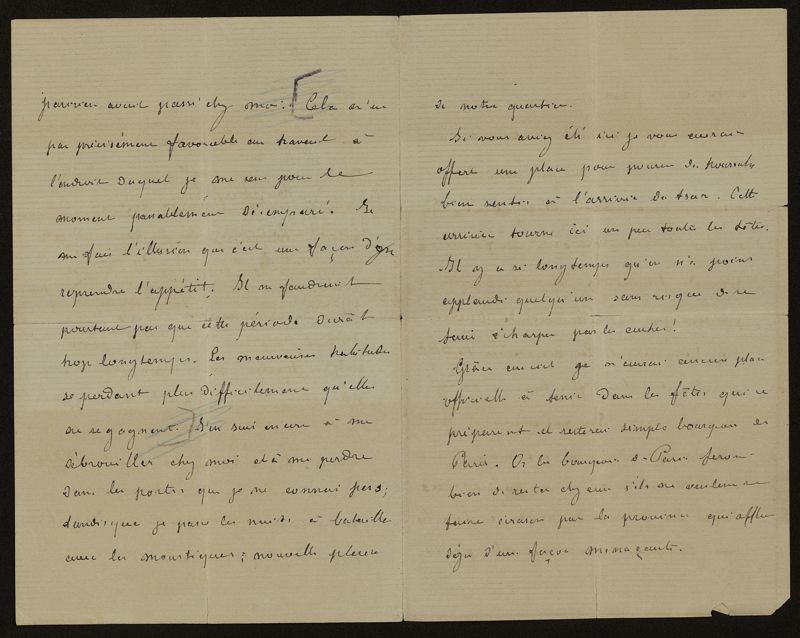 parvien avait passé chez moi. [Cela n'est
pas précisément favorable au travail à
l'endroit duquel je me sens pour le
moment passablement désemparé. Je
me fais l'illusion que c'est une façon d'y
reprendre l'appétit. Il ne faudrait
pourtant pas que cette période durât
trop longtemps. Les mauvaises habitudes
se perdant plus difficilement qu'elles
ne se gagnent.] J'en suis encore à me
débrouiller chez moi et à me perdre
dans les portes que je ne connais pas;
tandis que je passe les nuits à batailler
avec les moustiques; nouvelle plaie
de notre quartier.
Si vous aviez été ici je vous aurais
offert une place pour pousser des hourrahs
bien sentis à l'arrivée du tsar. Cette
arrivée tourne ici un peu toutes les têtes.
Il y a si longtemps qu'on n'a point
applaudi quelqu'un sans risque de se
faire écharper par les autres!
Grâce au ciel je n'aurai aucune place
officielle à tenir dans les fêtes qui se
préparent et resterai simple bourgeois de
Paris. Or les bourgeois de Paris feront
bien de rester chez eux s'ils ne veulent se
faire écraser par la province qui afflue
déjà d'une façon menaçante.